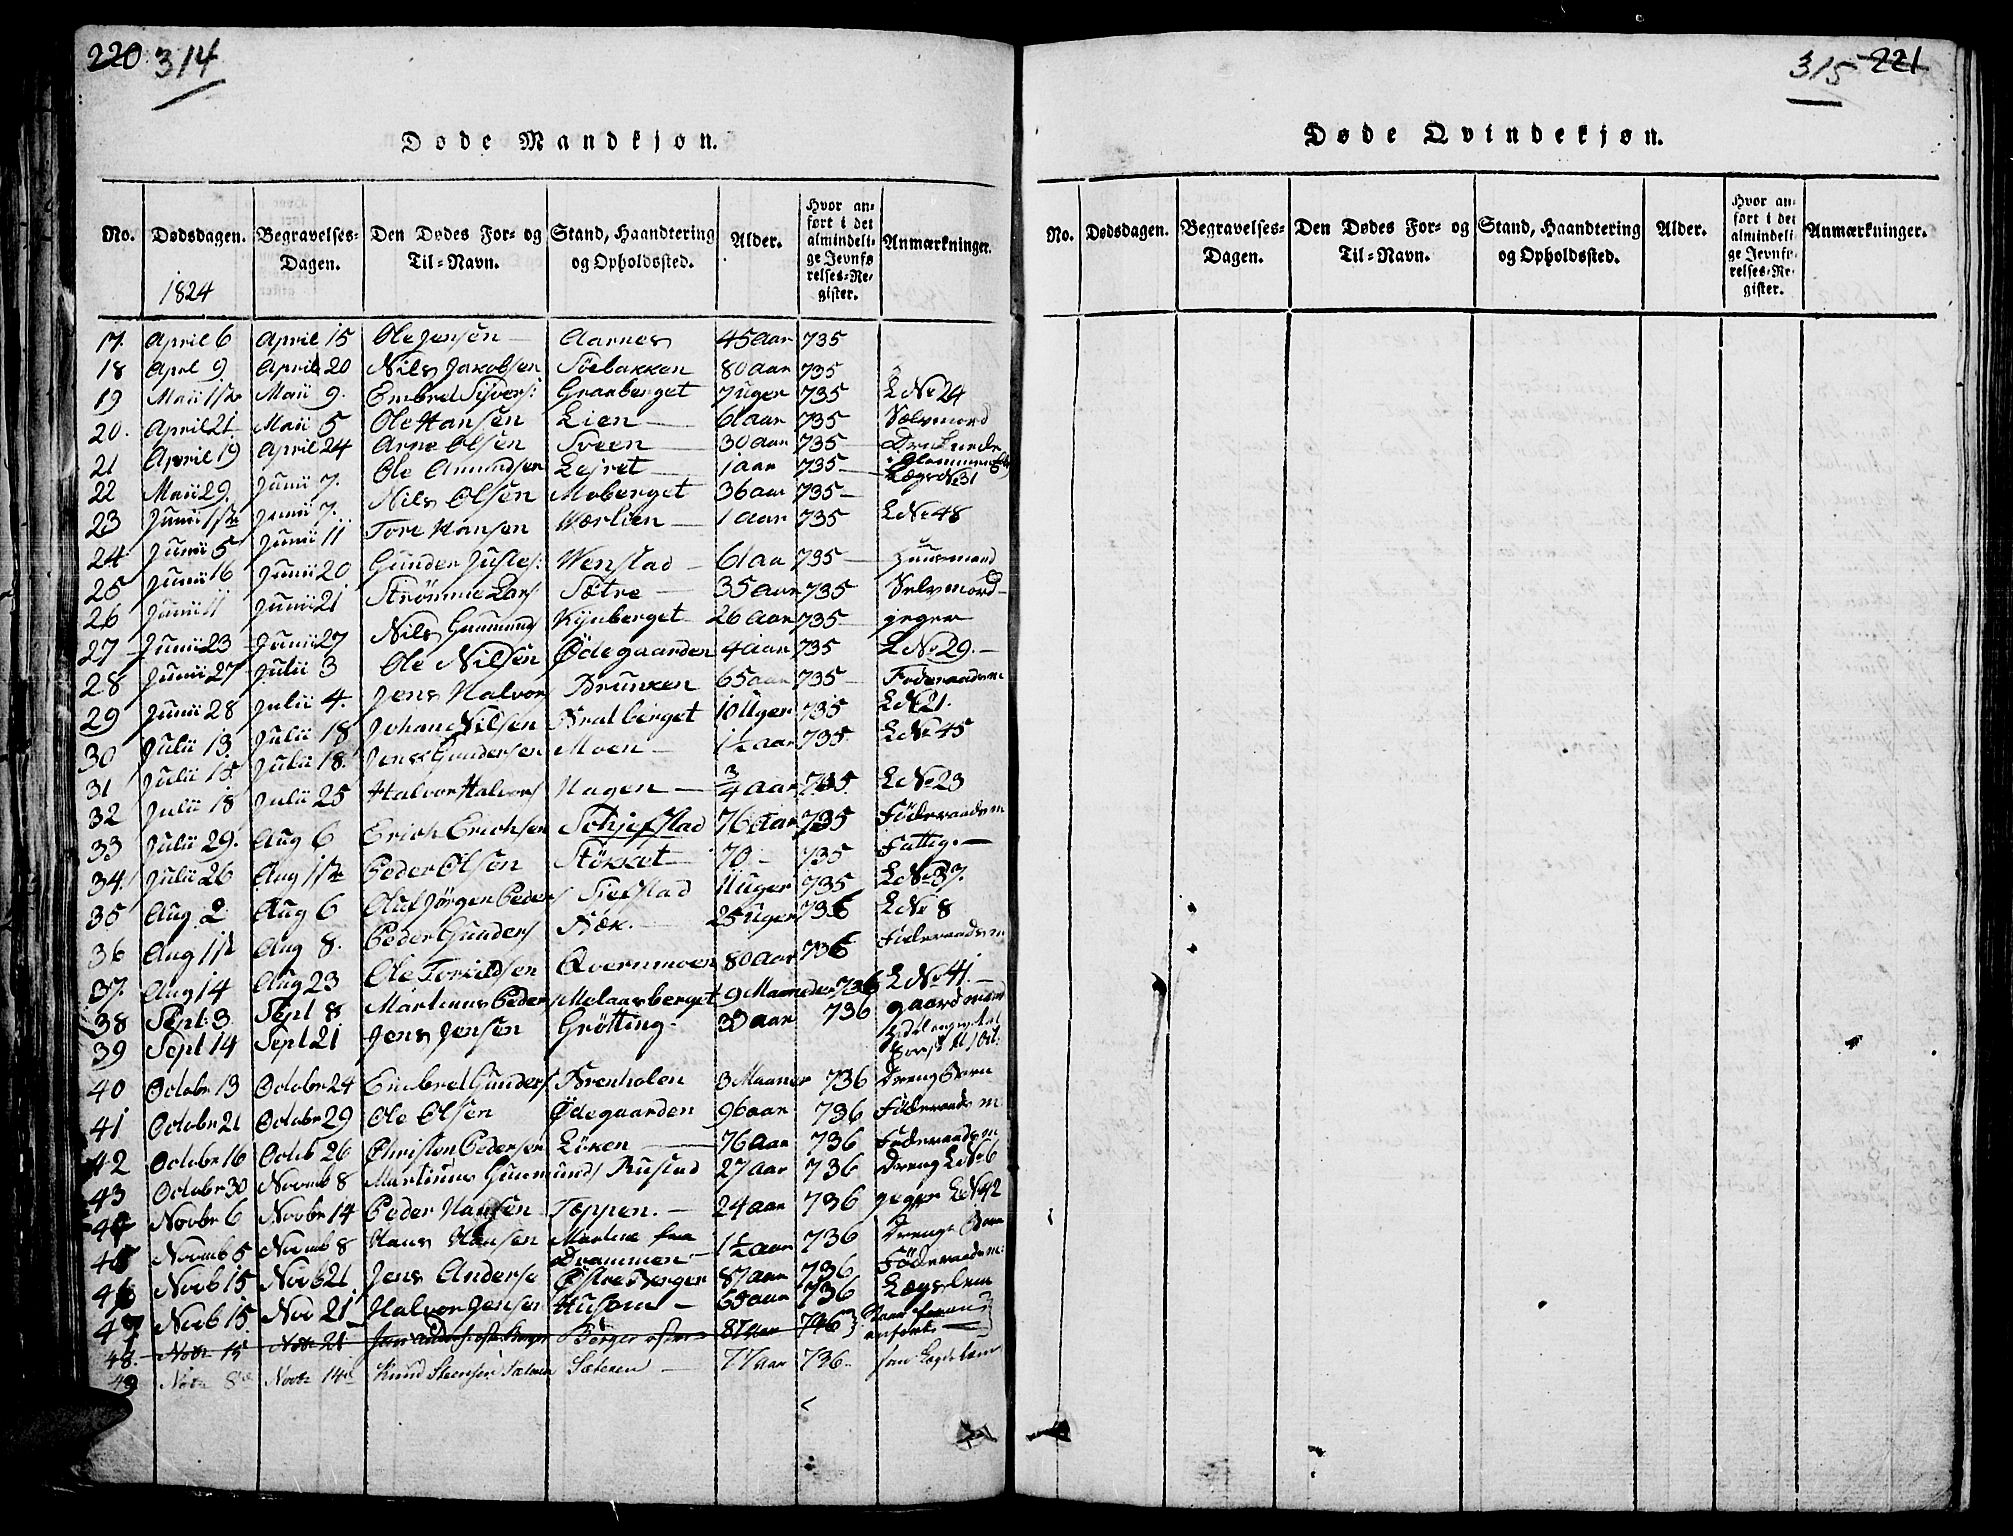 220 314
Døde Mandkjøn.
No. Dødsdagen. Begravelses-Dagen. Den Dødes For- og Til-Navn. Stand, Haandtering og Opholdssted. Alder. Hvor anført i det almindelige Jevnførelses-Register. Anmærkninger.
1824
17. April 6 April 15 Ole Jensen Aarnes 45 Aar 735
18 Aprl 9 April 20 Nils Jakobsen Söebakken 80 aar 735
19 Maii 1ste Maii 9. Embret Syvers: Granberget 7 uger 735 L No 24
20. April 21 Maii 5 Ole Hansen Lien 61 aar 735 Selvmord
21 April 19 April 24 Arne Olsen Sveen 30 aar 735 Druknede i Glommen
22 Maii 29. Junii 7. Ole Amundsen Lejret 1 aar 735 Lægd No 31
23 Junii 1ste Junii 7. Nils Olsen Moberget 36 aar 735
24 Junii 5 Junii 11 Tore Hansen Wærlien 1 aar 735 L No 48
25 Junii 16 Junii 20 Gunder Justes: Wenstad 61 aa 735 Huusmand
26 Junii 11 Junii 21 Strömme Lars Sætre 35 aar 735 Selvmord
27 Junii 23 Junii 27 Nils Gunmunds Kynberget 26 aar 735 geger
28 Junii 27 Julii 3 Ole Nilsen Ödegaarden 4 aar 735 L No 29.
29 Junii 28 Julii 4. Jens Halvors Brunken 65 aar 735 Foderaadsm
30 Julii 13. Julii 18 Johan Nilsen Bratberget 10 Uger 735 L No 21.
31 Julii 15 Julii 18. Jens Gundersen Moen 1½ aar 735 L No 45
32 Julii 18 Julii 25 Halvor Halvors Hagen 3/4 aar 735 L No 23
33 Julii 29. Aug 6 Erich Erichsen Schjefstad 76 Aar 735 Föderaadsm
34. Julii 26 Aug 1ste Peder Olsen Stökket 70 - 735 Fattig.
35 Aug. 2 Aug 6 Olul Jörgen Peders Siefstad 11 uger 735 L No 37.
36 Aug 11te Aug 8. Peder Gunders Bæk. 25 Uger 736 L No 8
37. Aug 14 Aug 23 Ole Torkildsen Qvernmoen 80 aar 736 Föderaadsm
38 Sept: 3 Sept 8 Martinus Peders Melaasberget 9 Maaneder 736 L No 41.
39 Sept 14 Sept 21 Jens Jensen Grötting. 33 aar 736 gaardmand
40 Octobr 13 October 24 Embret Gunders Brenholen 3 Maaner 736 Dreng Barn
41 Octobr 21 Octobr 29 Ole Olsen Ödegaarden 96 aar 736 Föderaadsm
42 Octobr 16 Octob 26 Christen Pedersen Löken 76 aar 736 Föderaadsm
43 Octobr 30 Novmb 8 Martinus Gunmunds Rustad 27 aar 736 Dreng L No 6
44 Novbr 6 Novbr 14 Peder Hansen Tæppen. 24 aar 736 geger L No 42
45 Novmb 5 Novmb 8 Hans Hansen Moelne fra Drammen 1½ aar 736 Drenge Barn
46 Novb 15 Novb 21 Jens Anderse Östre Berger 87 aar 736 Föderaadsm:
47 Novb 15. Nov 21 Halvor Jensen Husom 65 aar 736 Lægslem
48. Novbr 15 Novbr 21 Jens Anders: östr Berger Berger östre 87 aar 746 anfört
49 Novbr 8de Novbr 14de Knud Steensen Sæteren Sæteren 77 aar 736. som Legdslem
315 221
Døde Qvindekjøn.
No. Dødsdagen. Begravelses-Dagen. Den Dødes For- og Til-Navn. Stand, Haandtering og Opholdssted. Alder. Hvor anført i det almindelige Jevnførelses-Register. Anmærkninger.